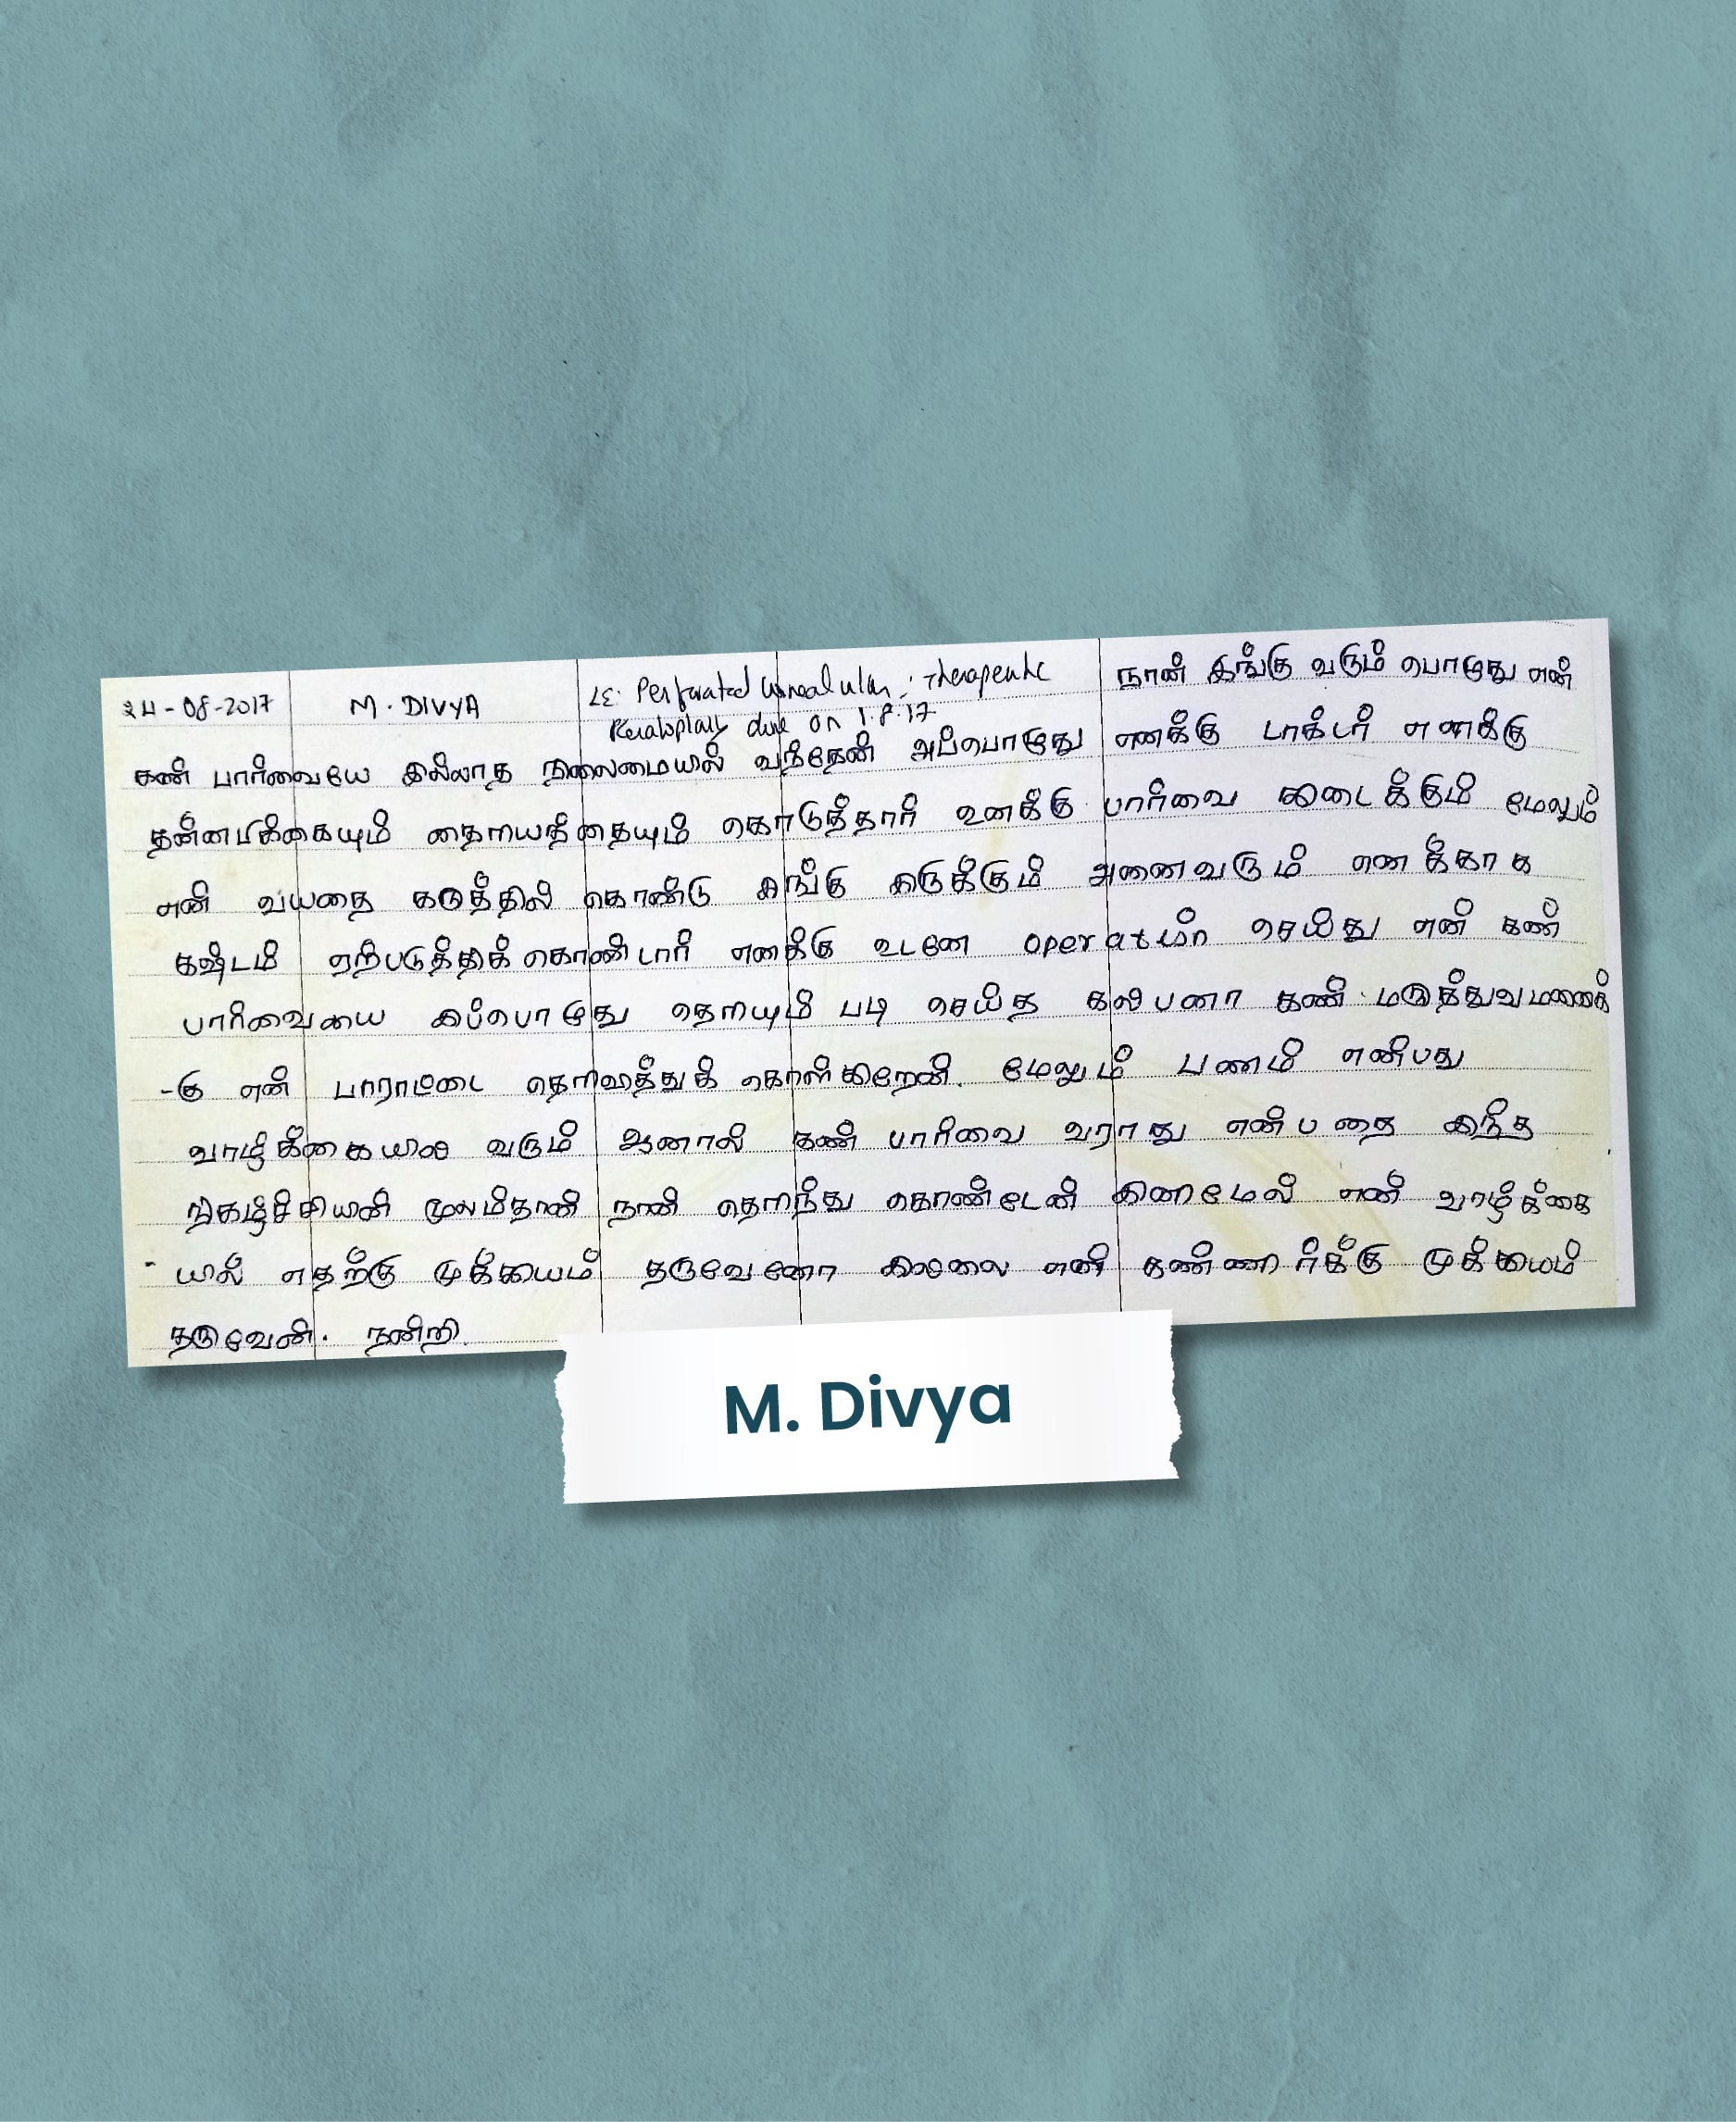 24-08-2017 M. DIVYA LE: Perforated corneal ulcer; Therapeutic நான் இங்கு வரும் பொழுது என்
Keratoplasty done on 1.8.17
கண் பார்வையே இல்லாத நிலைமையில் வந்தேன் அப்பொழுது எனக்கு டாக்டர் எனக்கு
தன்னபிக்கையும் தைரியத்தையும் கொடுத்தார் உனக்கு பார்வை கிடைக்கும் மேலும்
என் வயதை கருத்தில் கொண்டு இங்கு இருக்கும் அனைவரும் எனக்காக
கஷ்டம் ஏற்படுத்திக் கொண்டார் எனக்கு உடனே operation செய்து என் கண்
பார்வையை இப்பொழுது தெரியும் படி செய்த கல்பனா கண் மருத்துவமனைக்
-கு என் பாராட்டை தெரிவித்துக் கொள்கிறேன். மேலும் பணம் என்பது
வாழ்க்கையில் வரும் ஆனால் கண் பார்வை வராது என்பதை இந்த
நிகழ்ச்சியின் மூலம்தான் நான் தெரிந்து கொண்டேன் இனிமேல் என் வாழ்க்கை
யில் எதற்கு முக்கியம் தருவேனோ இல்லை என் கண்ணுர்க்கு முக்கியம்
தருவேன். நன்றி.
M. Divya